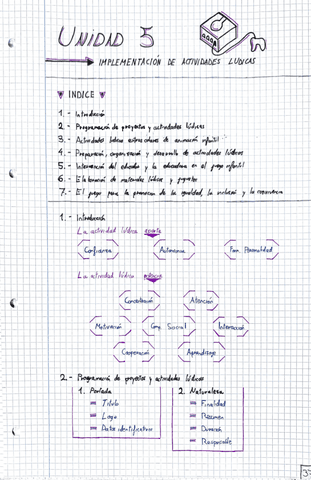 UNIDAD 5
IMPLEMENTACIÓN DE ACTIVIDADES LUDICAS
INDICE
1.- Introducción
2.- Programación de proyectos y actividades lúdicas
3.- Actividades lúdicas de animación infantil
4.- Preparación, organización y desarrollo de actividades lúdicas
5.- Intervención del educador y la educadora en el juego infantil
6.- Elaboración de materiales lúdicos y juguetes
7.- El juego para la promoción de la igualdad, la inclusión y la convivencia
1.- Introducción
La actividad lúdica aporta
Confianza Autonomía Fom. Personalidad
La actividad lúdica
Concentración Atención
Motivación Comp. Social Interacción
Cooperación Aprendizaje
2.- Programación de proyectos y actividades lúdicas
1. Portada
Titulo
Logo
Datos identificativos
2. Naturaleza
Finalidad
Resumen
Duración
Responsable